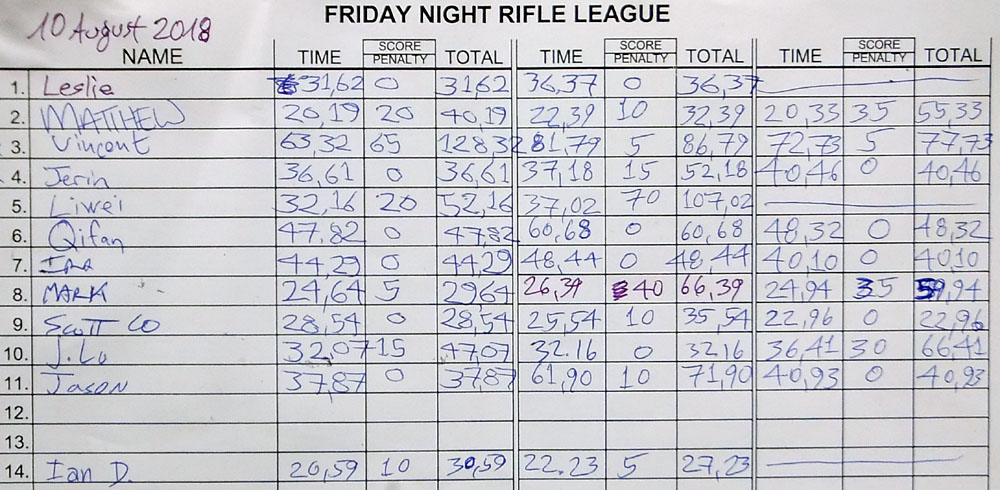 FRIDAY NIGHT RIFLE LEAGUE
10 August 2018
NAME TIME SCORE PENALTY TOTAL TIME SCORE PENALTY TOTAL TIME SCORE PENALTY TOTAL
1. Leslie 31,62 0 31,62 36,37 0 36,37
2. MATTHEW 20,19 20 40,19 22,39 10 32,39 20,33 35 55,33
3. Vincent 63,32 65 128,32 81,79 5 86,79 72,73 5 77,73
4. Jerin 36,61 0 36,61 37,18 15 52,18 40,46 0 40,46
5. Liwei 32,16 20 52,16 37,02 70 107,02
6. Qifan 47,82 0 47,82 60,68 0 60,68 48,32 0 48,32
7. 44,29 0 44,29 48,44 0 48,44 40,10 0 40,10
8. MARK 24,64 5 29,64 26,39 40 66,39 24,94 35 59,94
9. Scott CO 28,54 0 28,54 25,54 10 35,54 22,96 0 22,96
10. J. Lu 32,07 15 47,07 32.16 0 32,16 36,41 30 66,41
11. Jason 37,87 0 37,87 61,90 10 71,90 40,93 0 40,93
12.
13.
14. Ian D. 20,59 10 30,59 22.23 5 27,23